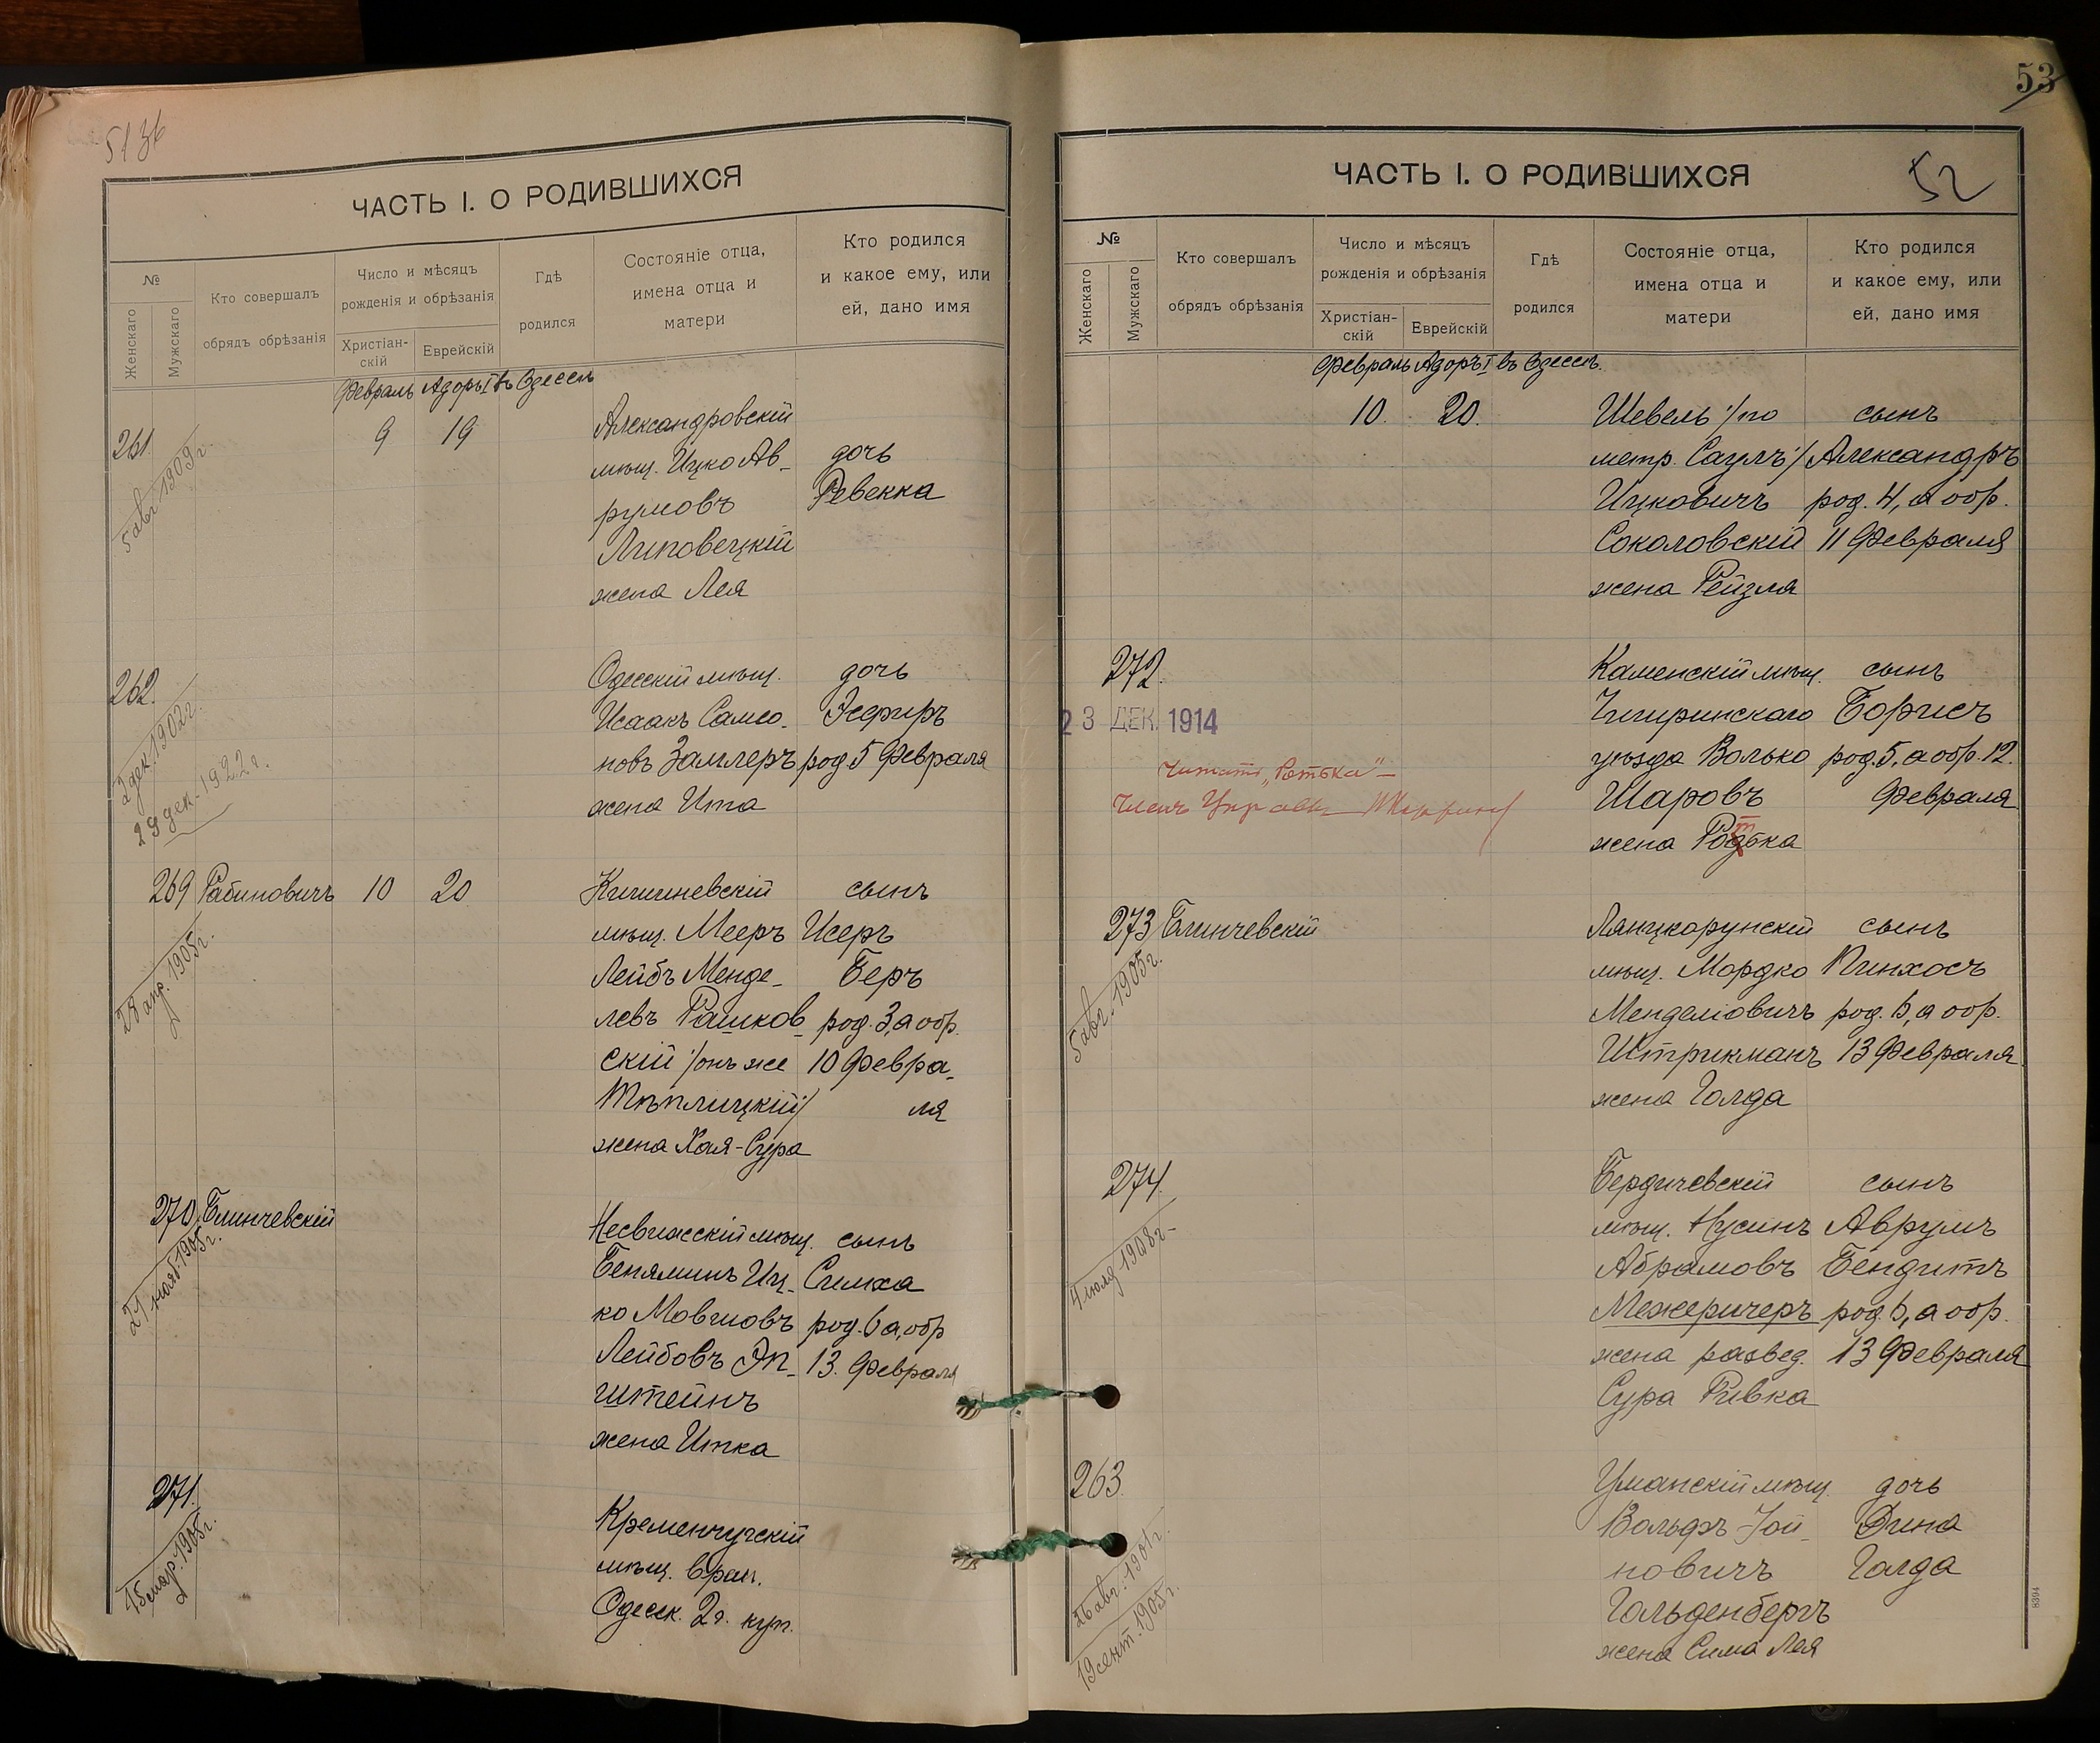 51 зб
ЧАСТЬ I. О РОДИВШИХСЯ
№
Женскаго
Мужскаго
Кто совершалъ
обрядъ обрѣзанія
Число и мѣсяцъ
рожденія и обрѣзанія
Христіан-
скій
Еврейскій
Гдѣ
родился
Состояніе отца,
имена отца и
матери
Кто родился
и какое ему, или
ей, дано имя
Февраль Адоръ I въ Одессѣ
261.
5 авг. 1909 г.
9 19
Александровскій
мѣщ. Ицко Ав-
румовъ
Липовецкій
жена Лея
дочь
Ревекка
262.
2 дек. 1902 г.
29 дек. 1922 г.
Одесскій мѣщ.
Исаакъ Самсо-
новъ Замлеръ
жена Ита
дочь
Эсфирь
род 5 Февраля
269 Рабиновичъ 10 20
28 апр. 1905 г.
Кишиневскій
мѣщ. Мееръ
Лейбъ Менде-
левъ Рашков-
скій /онъ же
Тѣплицкій/
жена Хая-Сура
сынъ
Исеръ
Беръ
род. 3, а обр.
10 Февра-
ля
270 Блинчевскій
21 нояб. 1905 г.
Несвижскій мѣщ.
Бенямин Иц-
ко Мовшовъ
Лейбовъ Эп-
штейнъ
жена Итка
сынъ
Симха
род. 6 а, обр
13. Февраля
271.
15 мар. 1905 г.
Кременчугскій
мѣщ. врем.
Одесск. 2 г. куп.
53
ЧАСТЬ I. О РОДИВШИХСЯ
52
№
Женскаго
Мужскаго
Кто совершалъ
обрядъ обрѣзанія
Число и мѣсяцъ
рожденія и обрѣзанія
Христіан-
скій
Еврейскій
Гдѣ
родился
Состояніе отца,
имена отца и
матери
Кто родился
и какое ему, или
ей, дано имя
Февраль Адоръ I въ Одессѣ.
10. 20.
Шевель /по
метр. Саулъ/
Ицковичъ
Соколовскій
жена Рейзля
сынъ
Александръ
род. 4, а обр.
11 Февраля
272.
23 ДЕК. 1914
Читать „Ротбка" –
Членъ Управы
Каменскій мѣщ.
Чигиринскаго
уѣзда Волько
Шаровъ
жена Родбка
сынъ
Борисъ
род. 5, а обр. 12.
Февраля
273 Блинчевскій
5 авг. 1905 г.
Лянцкорунскій
мѣщ. Мордко
Менделіовичъ
Штрикманъ
жена Голда
сынъ
Пинхосъ
род. 6, а обр.
13 Февраля
274.
4 июля 1908 г.
Бердичевскій
мѣщ. Нусинъ
Абрамовъ
Межеричеръ
жена развед.
Сура Ривка
сынъ
Аврумъ
Бендитъ
род. 6, а обр.
13 Февраля
263.
26 авг. 1901 г.
19 сент. 1905 г.
Уманскій мѣщ.
Вольфъ Іой-
новичъ
Гольденбергъ
жена Сима Лея
дочь
Дина
Голда
8394